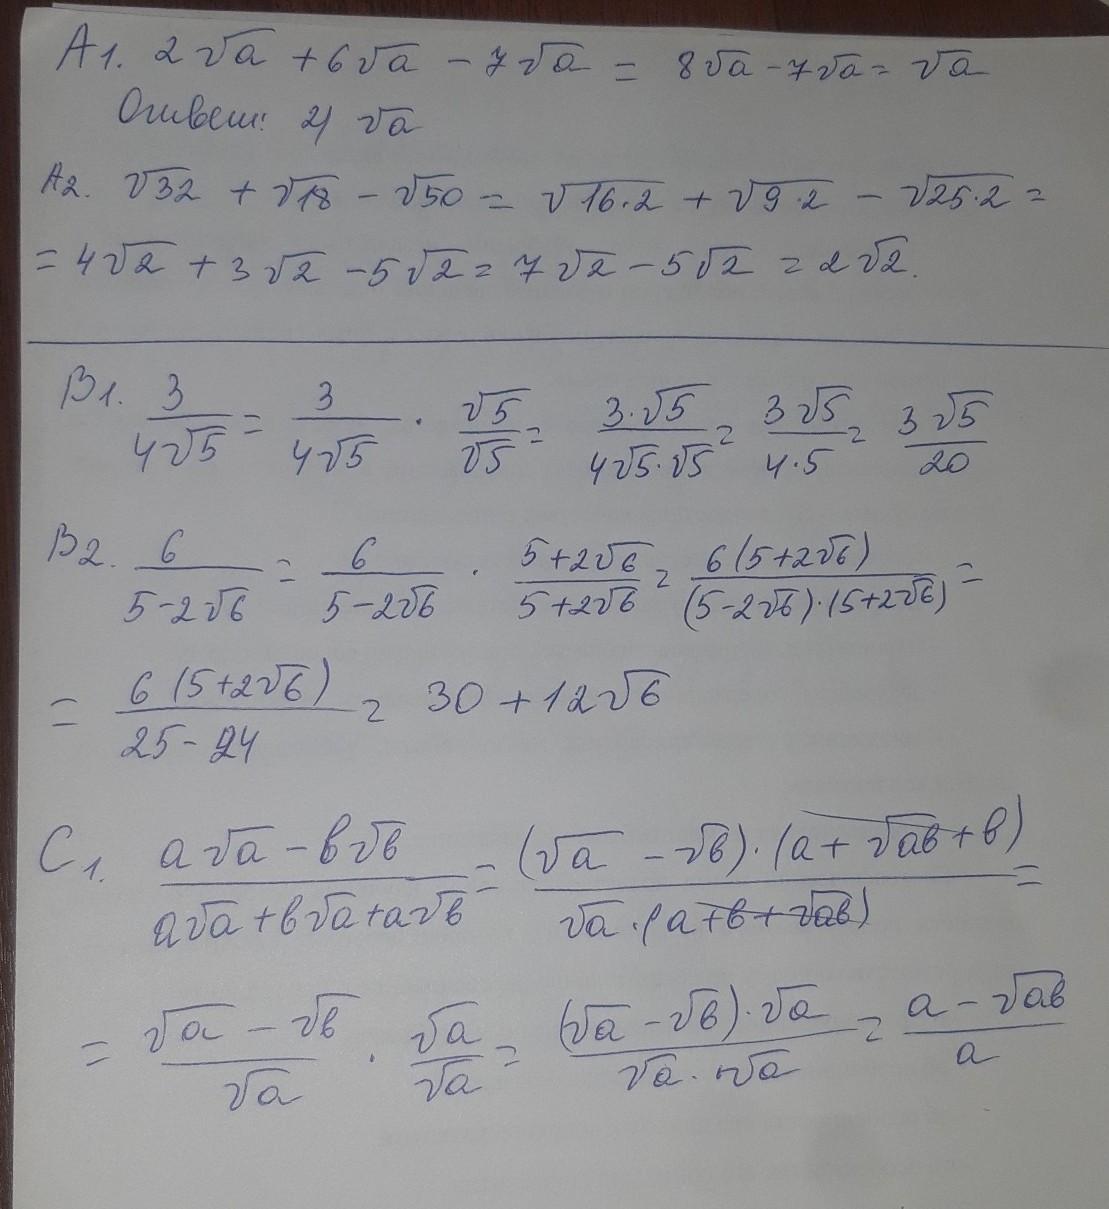 A1. 2√a + 6√a - 7√a = 8√a - 7√a = √a
Ответ: 2) √a
A2. √32 + √18 - √50 = √16·2 + √9·2 - √25·2 =
= 4√2 + 3√2 - 5√2 = 7√2 - 5√2 = 2√2.
B1. 3/4√5 = 3/4√5 · √5/√5 = 3·√5/4√5·√5 = 3√5/4·5 = 3√5/20
B2. 6/5-2√6 = 6/5-2√6 · 5+2√6/5+2√6 = 6(5+2√6)/(5-2√6)·(5+2√6) =
= 6(5+2√6)/25-24 = 30+12√6
C1. a√a - b√b/a√a + b√a + a√b = (√a - √b)·(a + √ab + b)/√a·(a + b + √ab) =
= √a - √b/√a · √a/√a = (√a - √b)·√a/√a·√a = a - √ab/a